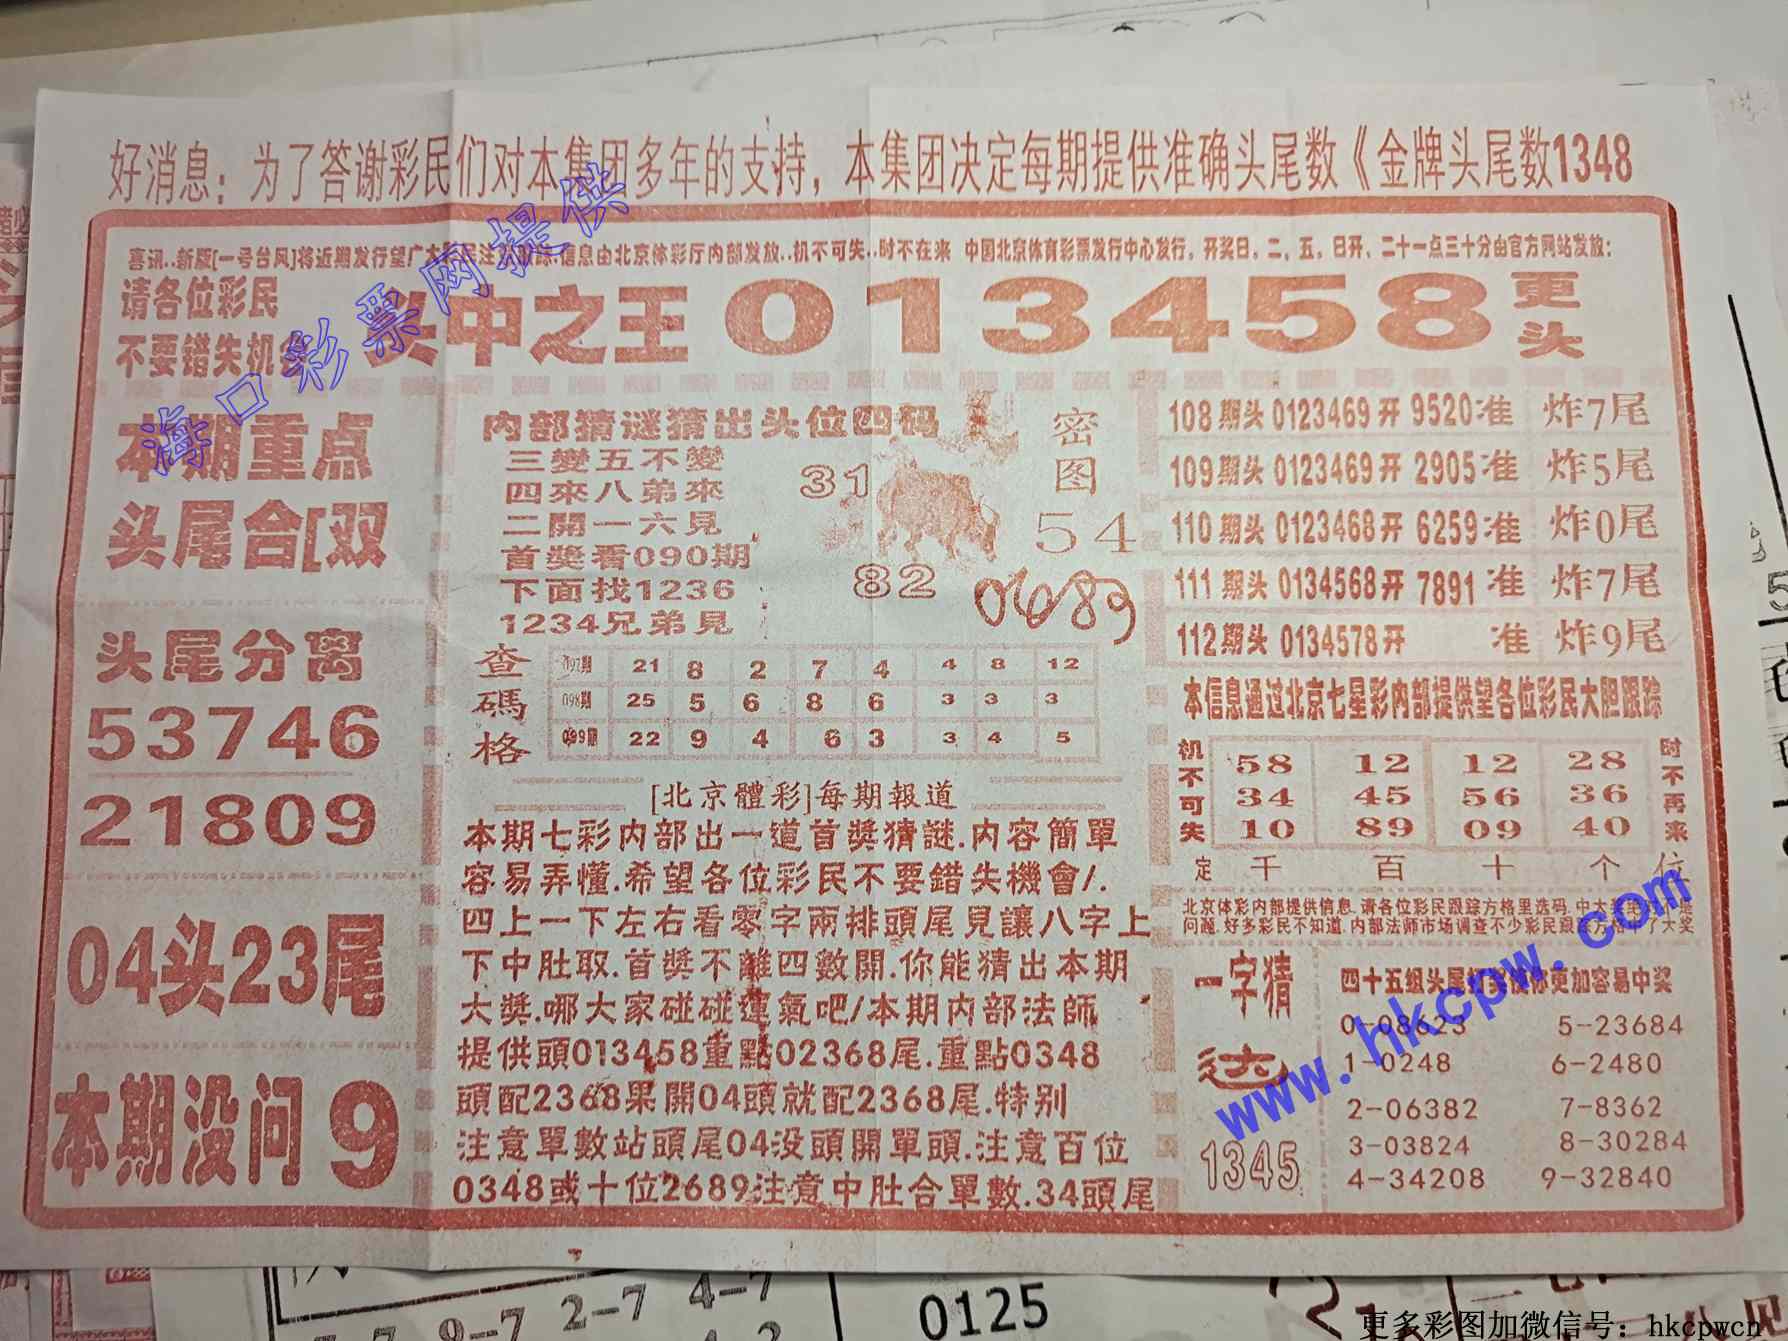 好消息：为了答谢彩民们对本集团多年的支持，本集团决定每期提供准确头尾数《金牌头尾数1348
喜讯..新版[一号台风]将近期发行望广大 民注 跟踪.信息由北京体彩厅内部发放..机不可失..时不在来 中国北京体育彩票发行中心发行，开奖日，二，五，日开，二十一点三十分由官方网站发放：
请各位彩民
不要错失机会
头中之王 013458 更头
本期重点
头尾合[双
头尾分离
53746
21809
04头23尾
本期没问 9
内部猜谜猜出头位四码
三變五不變
四來八弟來
二開一六見
首奬看090期
下面找1236
1234兄弟見
密图
31
54
82
0689
查碼格
097期 21 8 2 7 4 4 8 12
098期 25 5 6 8 6 3 3 3
099期 22 9 4 6 3 3 4 5
[北京體彩]每期報道
本期七彩内部出一道首奬猜謎.内容簡單
容易弄懂.希望各位彩民不要錯失機會/.
四上一下左右看零字兩排頭尾見讓八字上
下中肚取.首奬不離四數開.你能猜出本期
大奬.哪大家碰碰運氣吧/本期内部法師
提供頭013458重點02368尾.重點0348
頭配2368果開04頭就配2368尾.特别
注意單數站頭尾04没頭開單頭.注意百位
0348或十位2689注意中肚合單數.34頭尾
108期头 0123469开 9520准 炸7尾
109期头 0123469开 2905准 炸5尾
110期头 0123468开 6259准 炸0尾
111期头 0134568开 7891准 炸7尾
112期头 0134578开 准 炸9尾
本信息通过北京七星彩内部提供望各位彩民大胆跟踪
机不可失
58 12 12 28
34 45 56 36
10 89 09 40
时不再来
定 千 百 十 个 位
北京体彩内部提供信息.请各位彩民跟踪方格里选码.中大
问题.好多彩民不知道.内部法师市场调查不少彩民跟踪方格中了大奖
一字猜
1345
四十五组头尾 你更加容易中奖
0-08623 5-23684
1-0248 6-2480
2-06382 7-8362
3-03824 8-30284
4-34208 9-32840
海口彩票网提供
www.hkcpw.com
9-7 2-7 4-7
0125
更多彩图加微信号：hkcpwcn